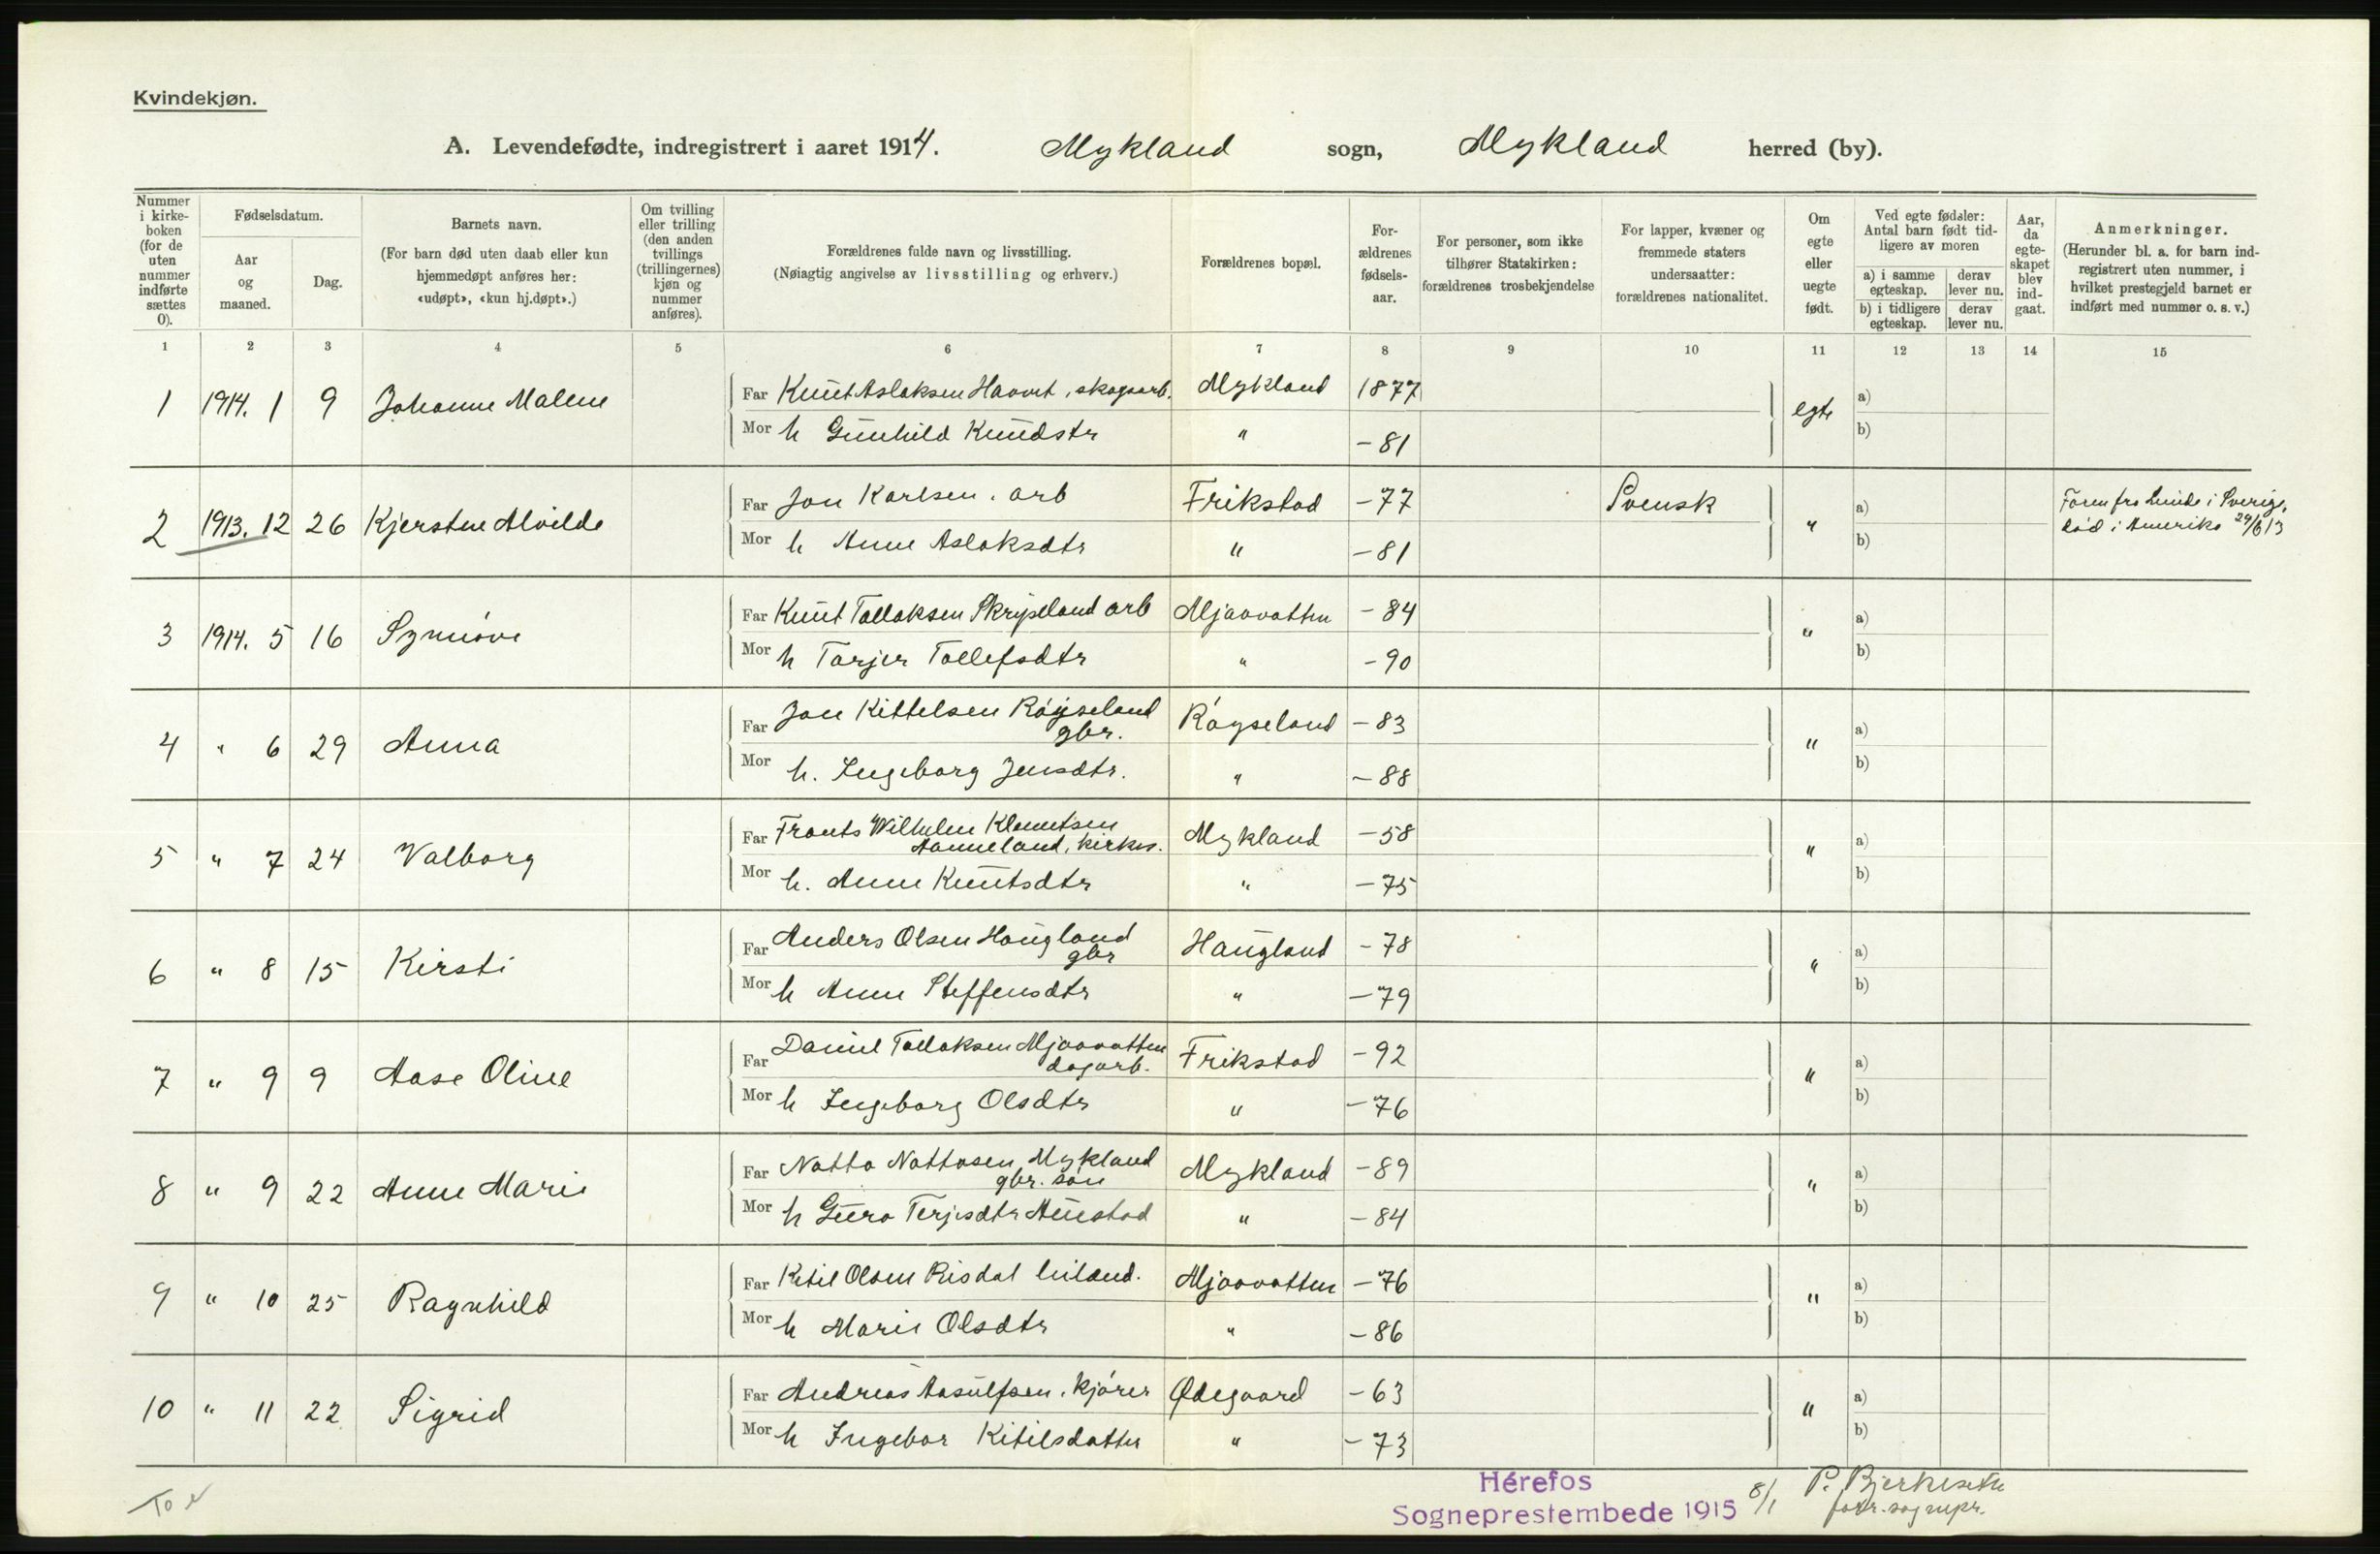 Kvindekjøn.
A. Levendefødte, indregistrert i aaret 1914. Mykland sogn, Mykland herred (by).
Nummer i kirke-boken (for de uten nummer indførte sættes 0).
Fødselsdatum.
Aar og maaned.
Dag.
Barnets navn.
(For barn død uten daab eller kun hjemmedøpt anføres her: «udøpt», «kun hj.døpt».)
Om tvilling eller trilling (den anden tvillings (trillingernes) kjøn og nummer anføres).
Forældrenes fulde navn og livsstilling.
(Nøiagtig angivelse av livsstilling og erhverv.)
Forældrenes bopæl.
For-ældrenes fødsels-aar.
For personer, som ikke tilhører Statskirken: forældrenes trosbekjendelse
For lapper, kvæner og fremmede staters undersaatter: forældrenes nationalitet.
Om egte eller uegte født.
Ved egte fødsler: Antal barn født tid-ligere av moren
a) i samme egteskap.
derav lever nu.
b) i tidligere egteskap.
derav lever nu.
Aar, da egte-skapet blev ind-gaat.
Anmerkninger.
(Herunder bl. a. for barn ind-registrert uten nummer, i hvilket prestegjeld barnet er indført med nummer o. s. v.)
1 2 3 4 5 6 7 8 9 10 11 12 13 14 15
1 1914. 1 9 Johanne Malene Far Knut Aslaksen Haavet, skogsarb. Mykland 1877 egte a)
Mor h Gunhild Knudsdtr " -81 b)
2 1913. 12 26 Kjersten Alvilde Far Jon Karlsen. arb Frikstad -77 Svensk " a) Faren fra Lunde i Sverige,
død i Amerika 29/6 13
Mor h Anne Aslaksdtr " -81 b)
3 1914. 5 16 Synnøve Far Knut Tallaksen Skripeland arb Mjaavatten -84 " a)
Mor h Tarjer Tollefsdtr " -90 b)
4 " 6 29 Anna Far Jon Kittelsen Røyseland
gbr. Røyseland -83 " a)
Mor h. Ingeborg Jensdtr. " -88 b)
5 " 7 24 Valborg Far Frants Wilhelm Klemetsen
Aanneland, kirkes. Mykland -58 " a)
Mor h. Anne Knutsdtr " -75 b)
6 " 8 15 Kirsti Far Anders Olsen Haugland
gbr Haugland -78 " a)
Mor h Anne Steffensdtr " -79 b)
7 " 9 9 Aase Oline Far Daniel Tallaksen Mjaavatten
dagarb. Frikstad -92 " a)
Mor h Ingeborg Olsdtr " -76 b)
8 " 9 22 Anne Marie Far Natta Nattasen Mykland
gbr. søn Mykland -89 " a)
Mor h Guro Terjesdtr Austad " -84 b)
9 " 10 25 Ragnhild Far Ketil Olsen Risdal leiland. Mjaavatten -76 " a)
Mor h Marie Olsdtr " -86 b)
10 " 11 22 Sigrid Far Andreas Aasulfsen. kjører Ødegaard -63 " a)
Mor h Ingebor Kitilsdatter " -73 b)
Hérefos
Sogneprestembede 1915 8/1 P. Bjerkeseth